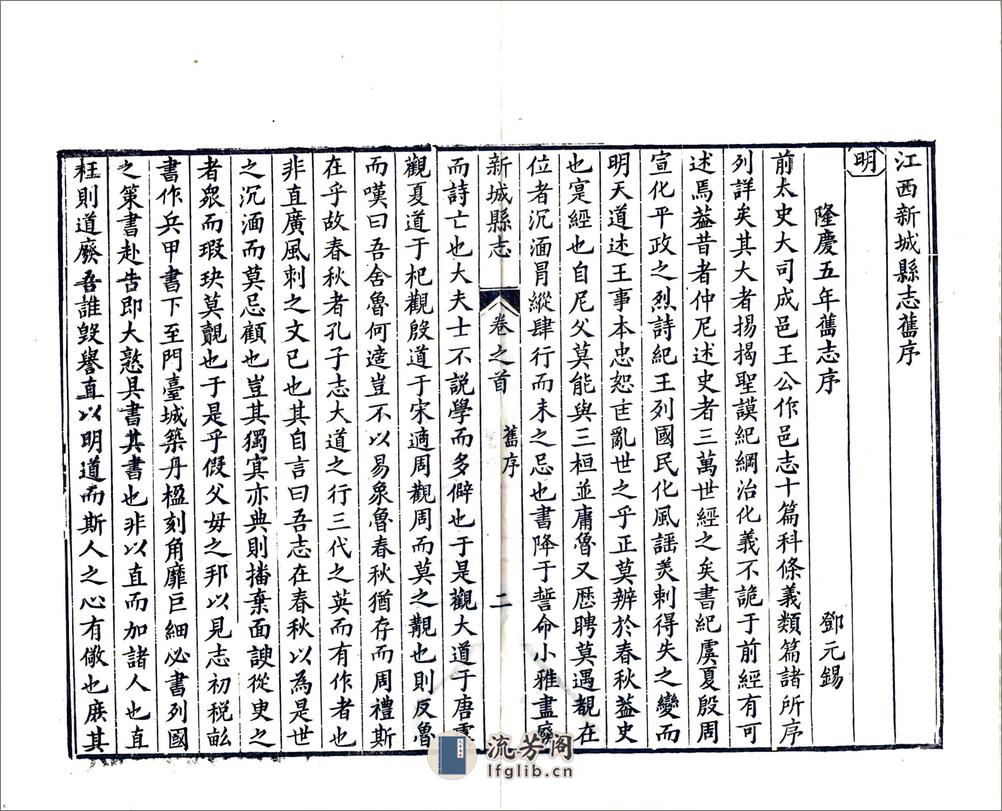 江西新城縣志舊序
明
隆慶五年舊志序 鄧元錫
前太史大司成邑王公作邑志十篇科條義類篇諸所序
列詳矣其大者揚揭聖謨紀綱治化義不詭于前經有可
述焉葢昔者仲尼述史者三萬世經之矣書紀虞夏殷周
宣化平政之烈詩紀王列國民化風謡美刺得失之變而
明天道述王事本忠恕丗亂世之乎正莫辨於春秋葢史
也寔經也自尼父莫能與三桓並庸魯又歴聘莫遇覩在
位者沉湎冐縱肆行而未之忌也書降于誓命小雅盡廢
新城縣志 卷之首 舊序 二
而詩亡也大夫士不説學而多僻也于是觀大道于唐虞
觀夏道于杞觀殷道于宋適周觀周而莫之覩也則反魯
而嘆曰吾舍魯何適豈不以易象魯春秋猶存而周禮斯
在乎故春秋者孔子志大道之行三代之英而有作者也
非直廣風刺之文已也其自言曰吾志在春秋以為是世
之沉湎而莫忌顧也豈其獨寘亦典則播棄面諛從臾之
者衆而瑕玦莫覿也于是乎假父母之邦以見志初税畝
書作兵甲書下至門臺城築丹楹刻角靡巨細必書列國
之策書赴告即大憝具書其書也非以直而加諸人也直
枉則道廢吾誰毀譽直以明道而斯人之心有儆也庻其
流芳阁
lfglib.cn